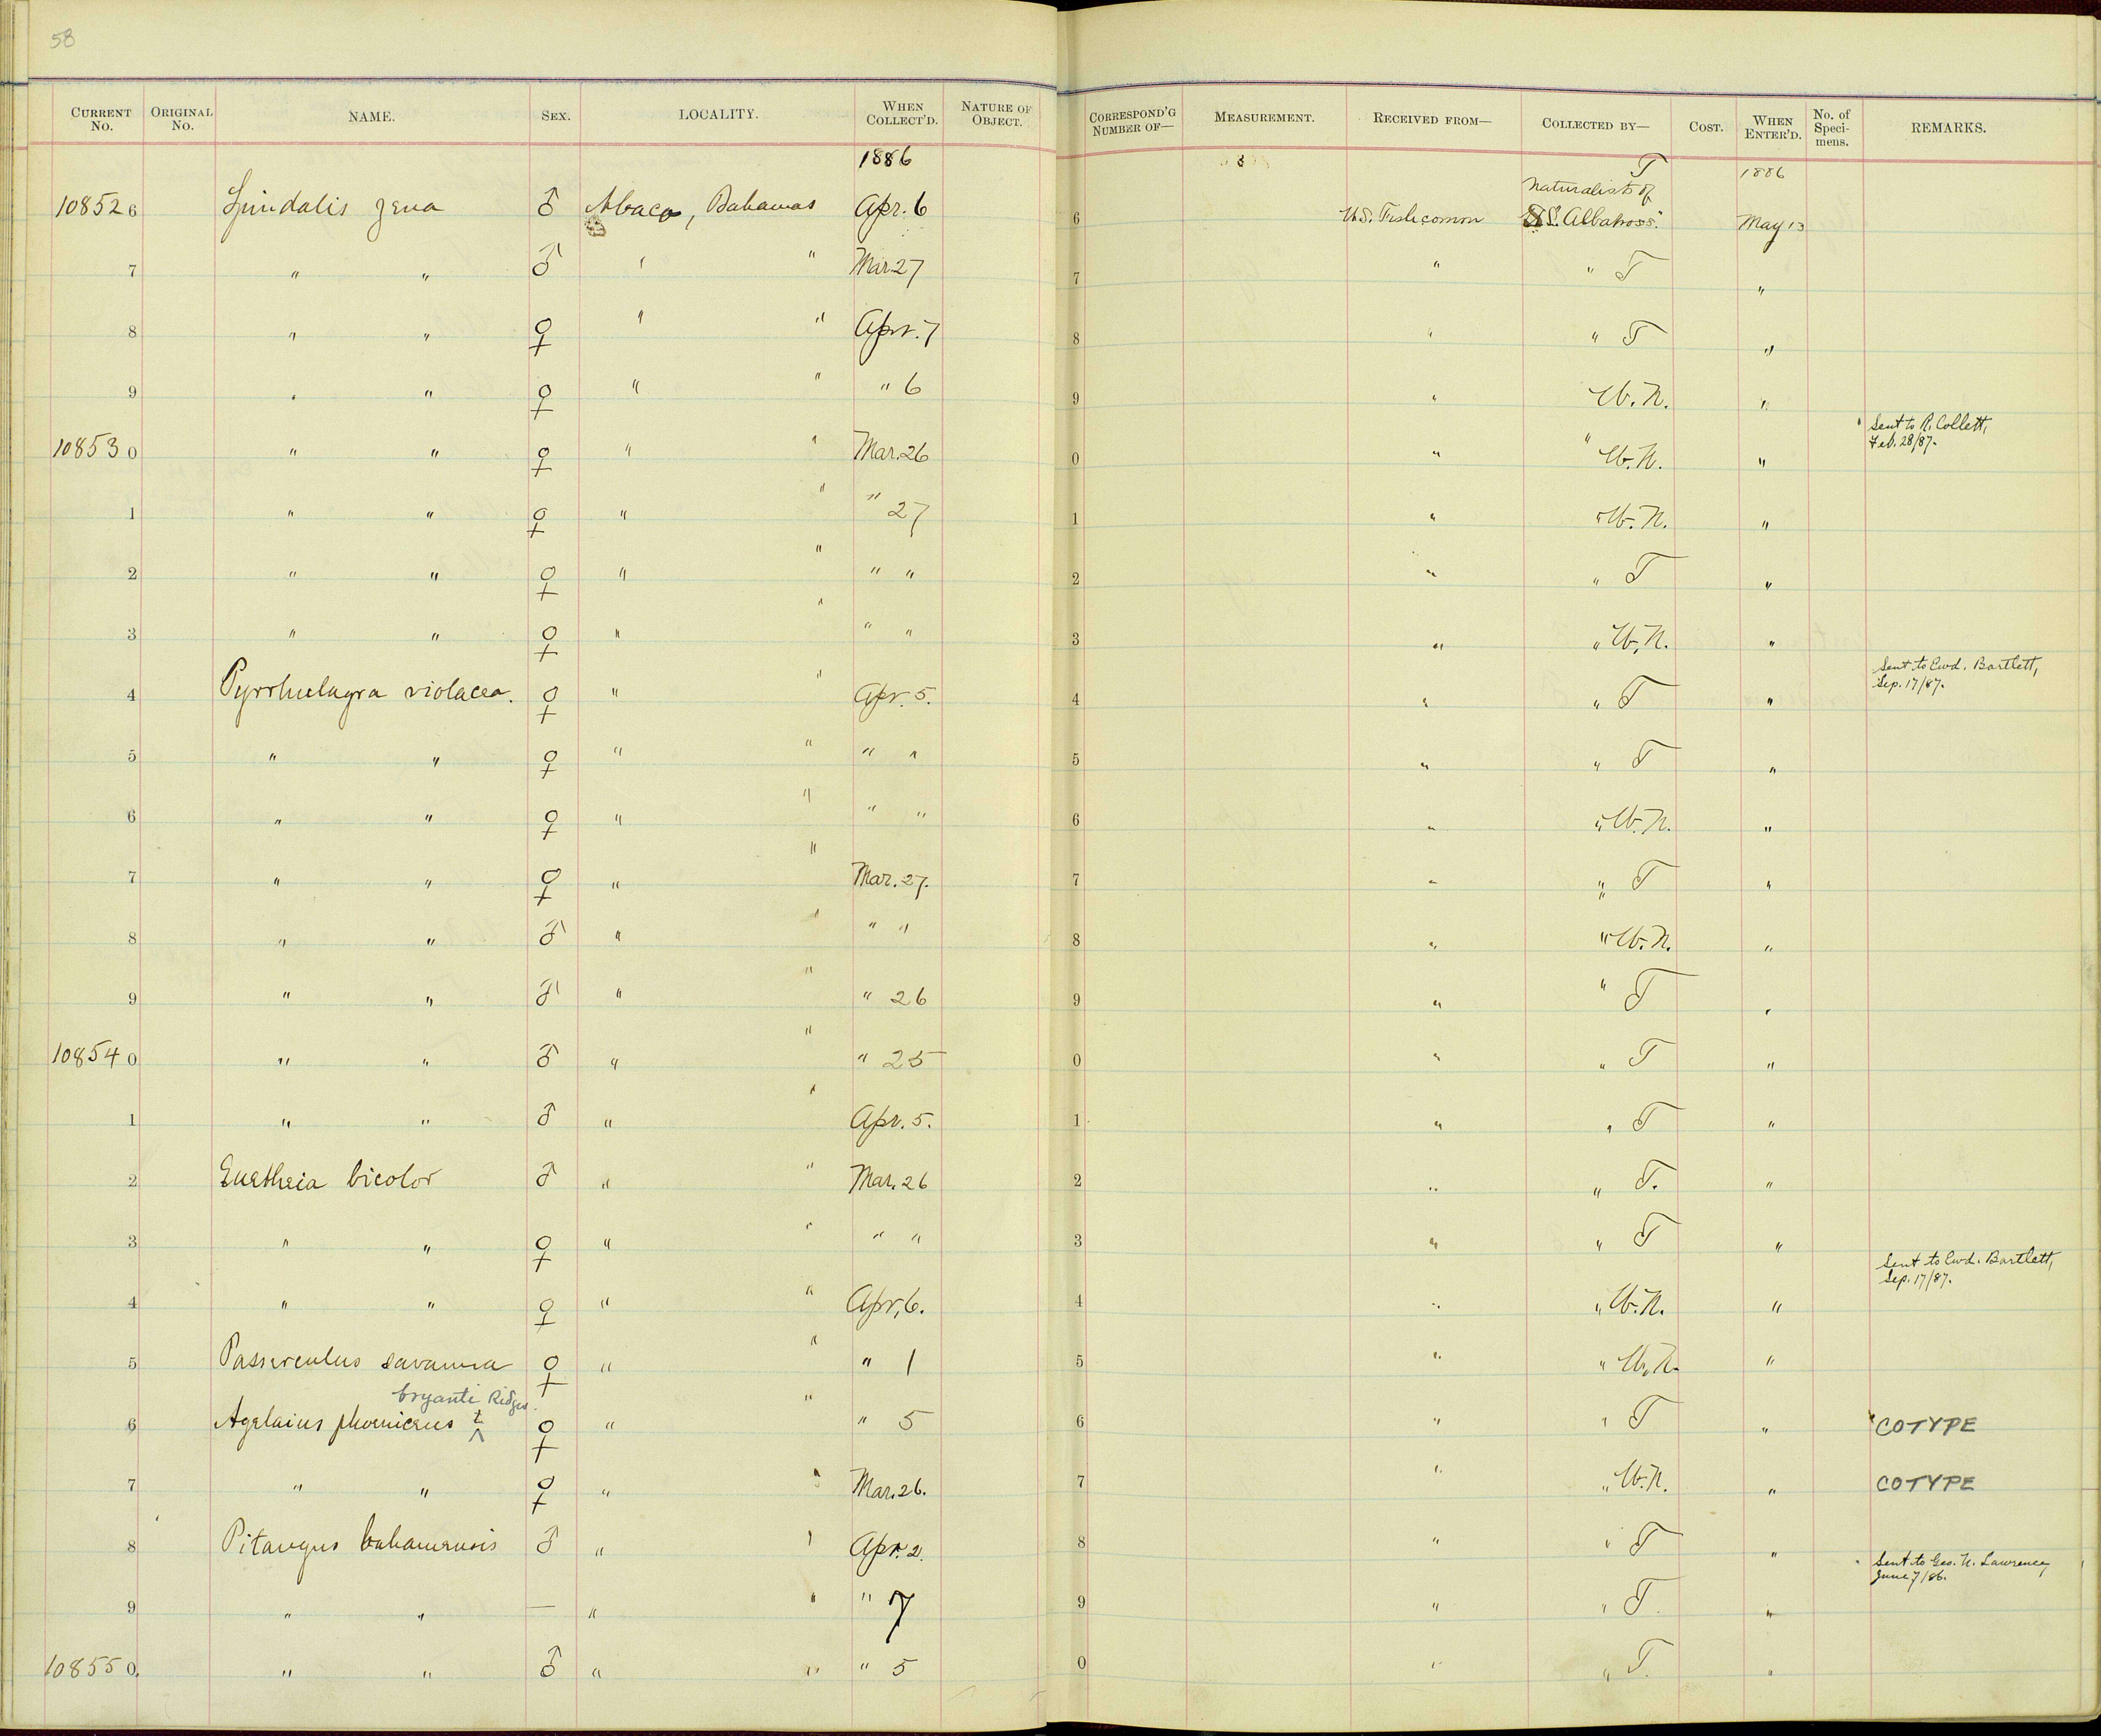 58
CURRENT No. ORIGINAL No. NAME. SEX. LOCALITY. WHEN COLLECT'D. NATURE OF OBJECT. CORRESPOND'G NUMBER OF— MEASUREMENT. RECEIVED FROM— COLLECTED BY— COST. WHEN ENTER'D. No. of Speci- mens. REMARKS.
1886 T 1886
Naturalists of
108526 Spindalis zena ♂ Abaco, Bahamas Apr. 6 6 U.S. Fish comm S.S. Albatross." May 13
7 " " ♂ " " Mar 27 7 " " T "
8 " " ♀ " " Apr. 7 8 " " T "
9 " " ♀ " " " 6 9 " W. N. "
Sent to R. Collett,
Feb. 28/87.
108530 " " ♀ " " Mar. 26 0 " " W. N. "
1 " " ♀ " " " 27 1 " " W. N. "
2 " " ♀ " " " " 2 " " T "
3 " " ♀ " " " " 3 " " W. N. "
Sent to Ewd. Bartlett,
Sep. 17/87.
4 Pyrrhulagra violacea. ♀ " " Apr. 5. 4 " " T "
5 " " ♀ " " " " 5 " " T "
6 " " ♀ " " " " 6 " " W. N. "
7 " " ♀ " " Mar. 27. 7 " " T "
8 " " ♂ " " " " 8 " " W. N. "
9 " " ♂ " " " 26 9 " " T "
108540 " " ♂ " " " 25 0 " " T "
1 " " ♂ " " Apr. 5. 1 " " T "
2 Euetheia bicolor ♂ " " Mar. 26 2 " " T. "
3 " " ♀ " " " " 3 " " T "
Sent to Ewd. Bartlett,
Sep. 17/87.
4 " " ♀ " " Apr. 6. 4 " " W. N. "
5 Passerculus savanna ♀ " " " 1 5 " " W. N. "
bryanti Ridgw.
6 Agelaius phoeniceus ♀ " " " 5 6 " " T " COTYPE
7 " " ♀ " " Mar. 26. 7 " " W. N. " COTYPE
8 Pitangus bahamensis ♂ " " Apr. 2. 8 " " T "
Sent to Geo. N. Lawrence,
June 7/86.
9 " " — " " " 7 9 " " T. "
108550. " " ♂ " " " 5 0 " " T. "